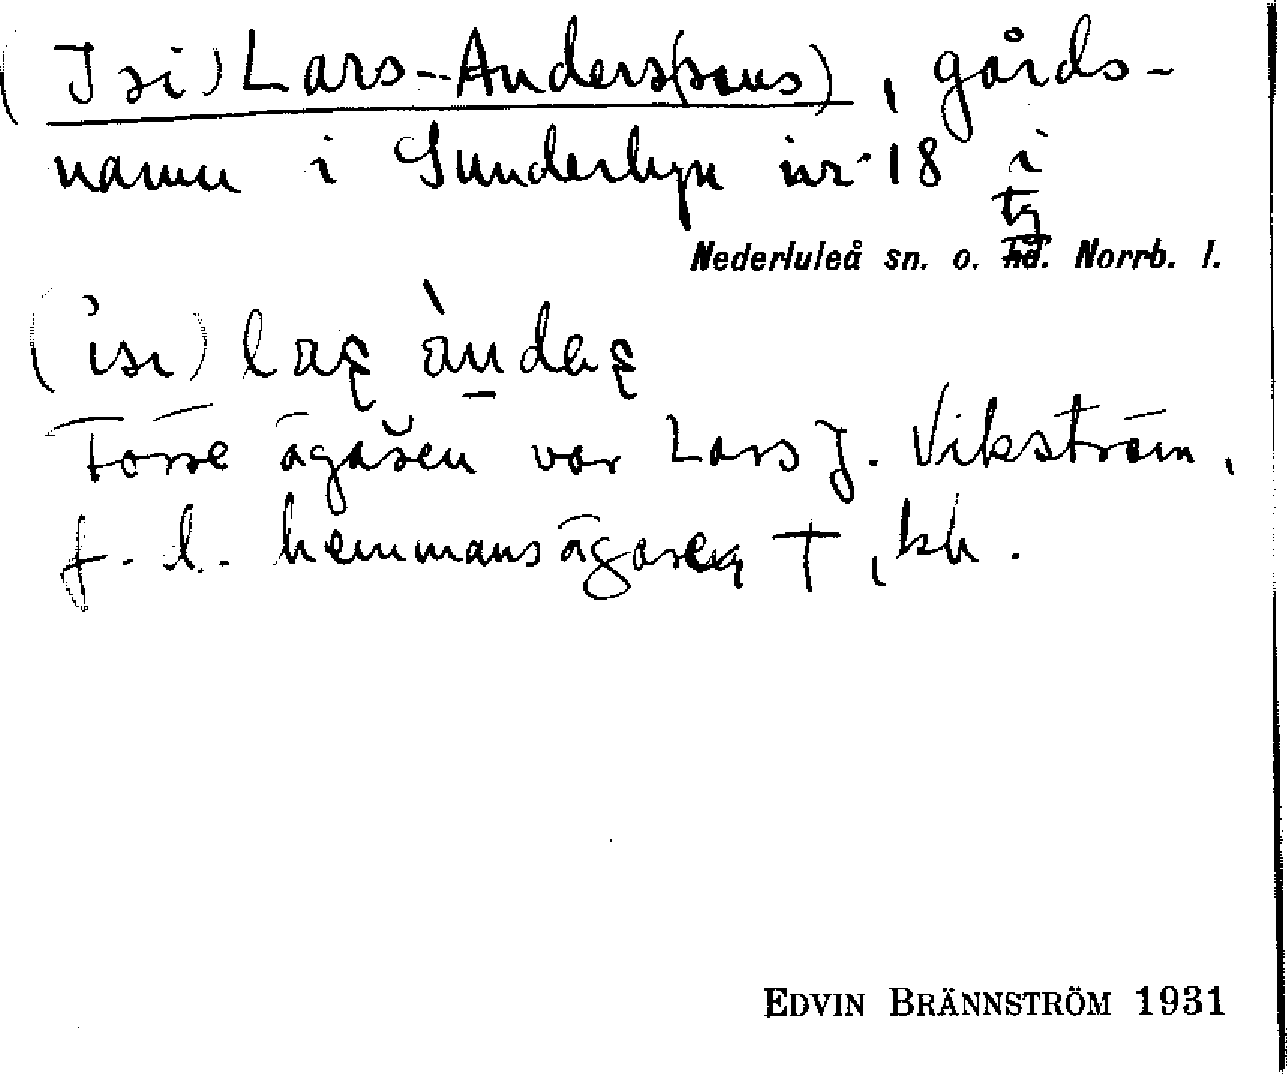 (Isi) Lars-Anders(sons), gårds-
namn i Sunderbyn nr 18 i
tg
Nederluleå sn. o. hd. Norrb. l.
(isi) las àndes
Förre ägaren var Lars J. Vikström,
f. l. hemmansägaren †, kh.
EDVIN BRÄNNSTRÖM 1931